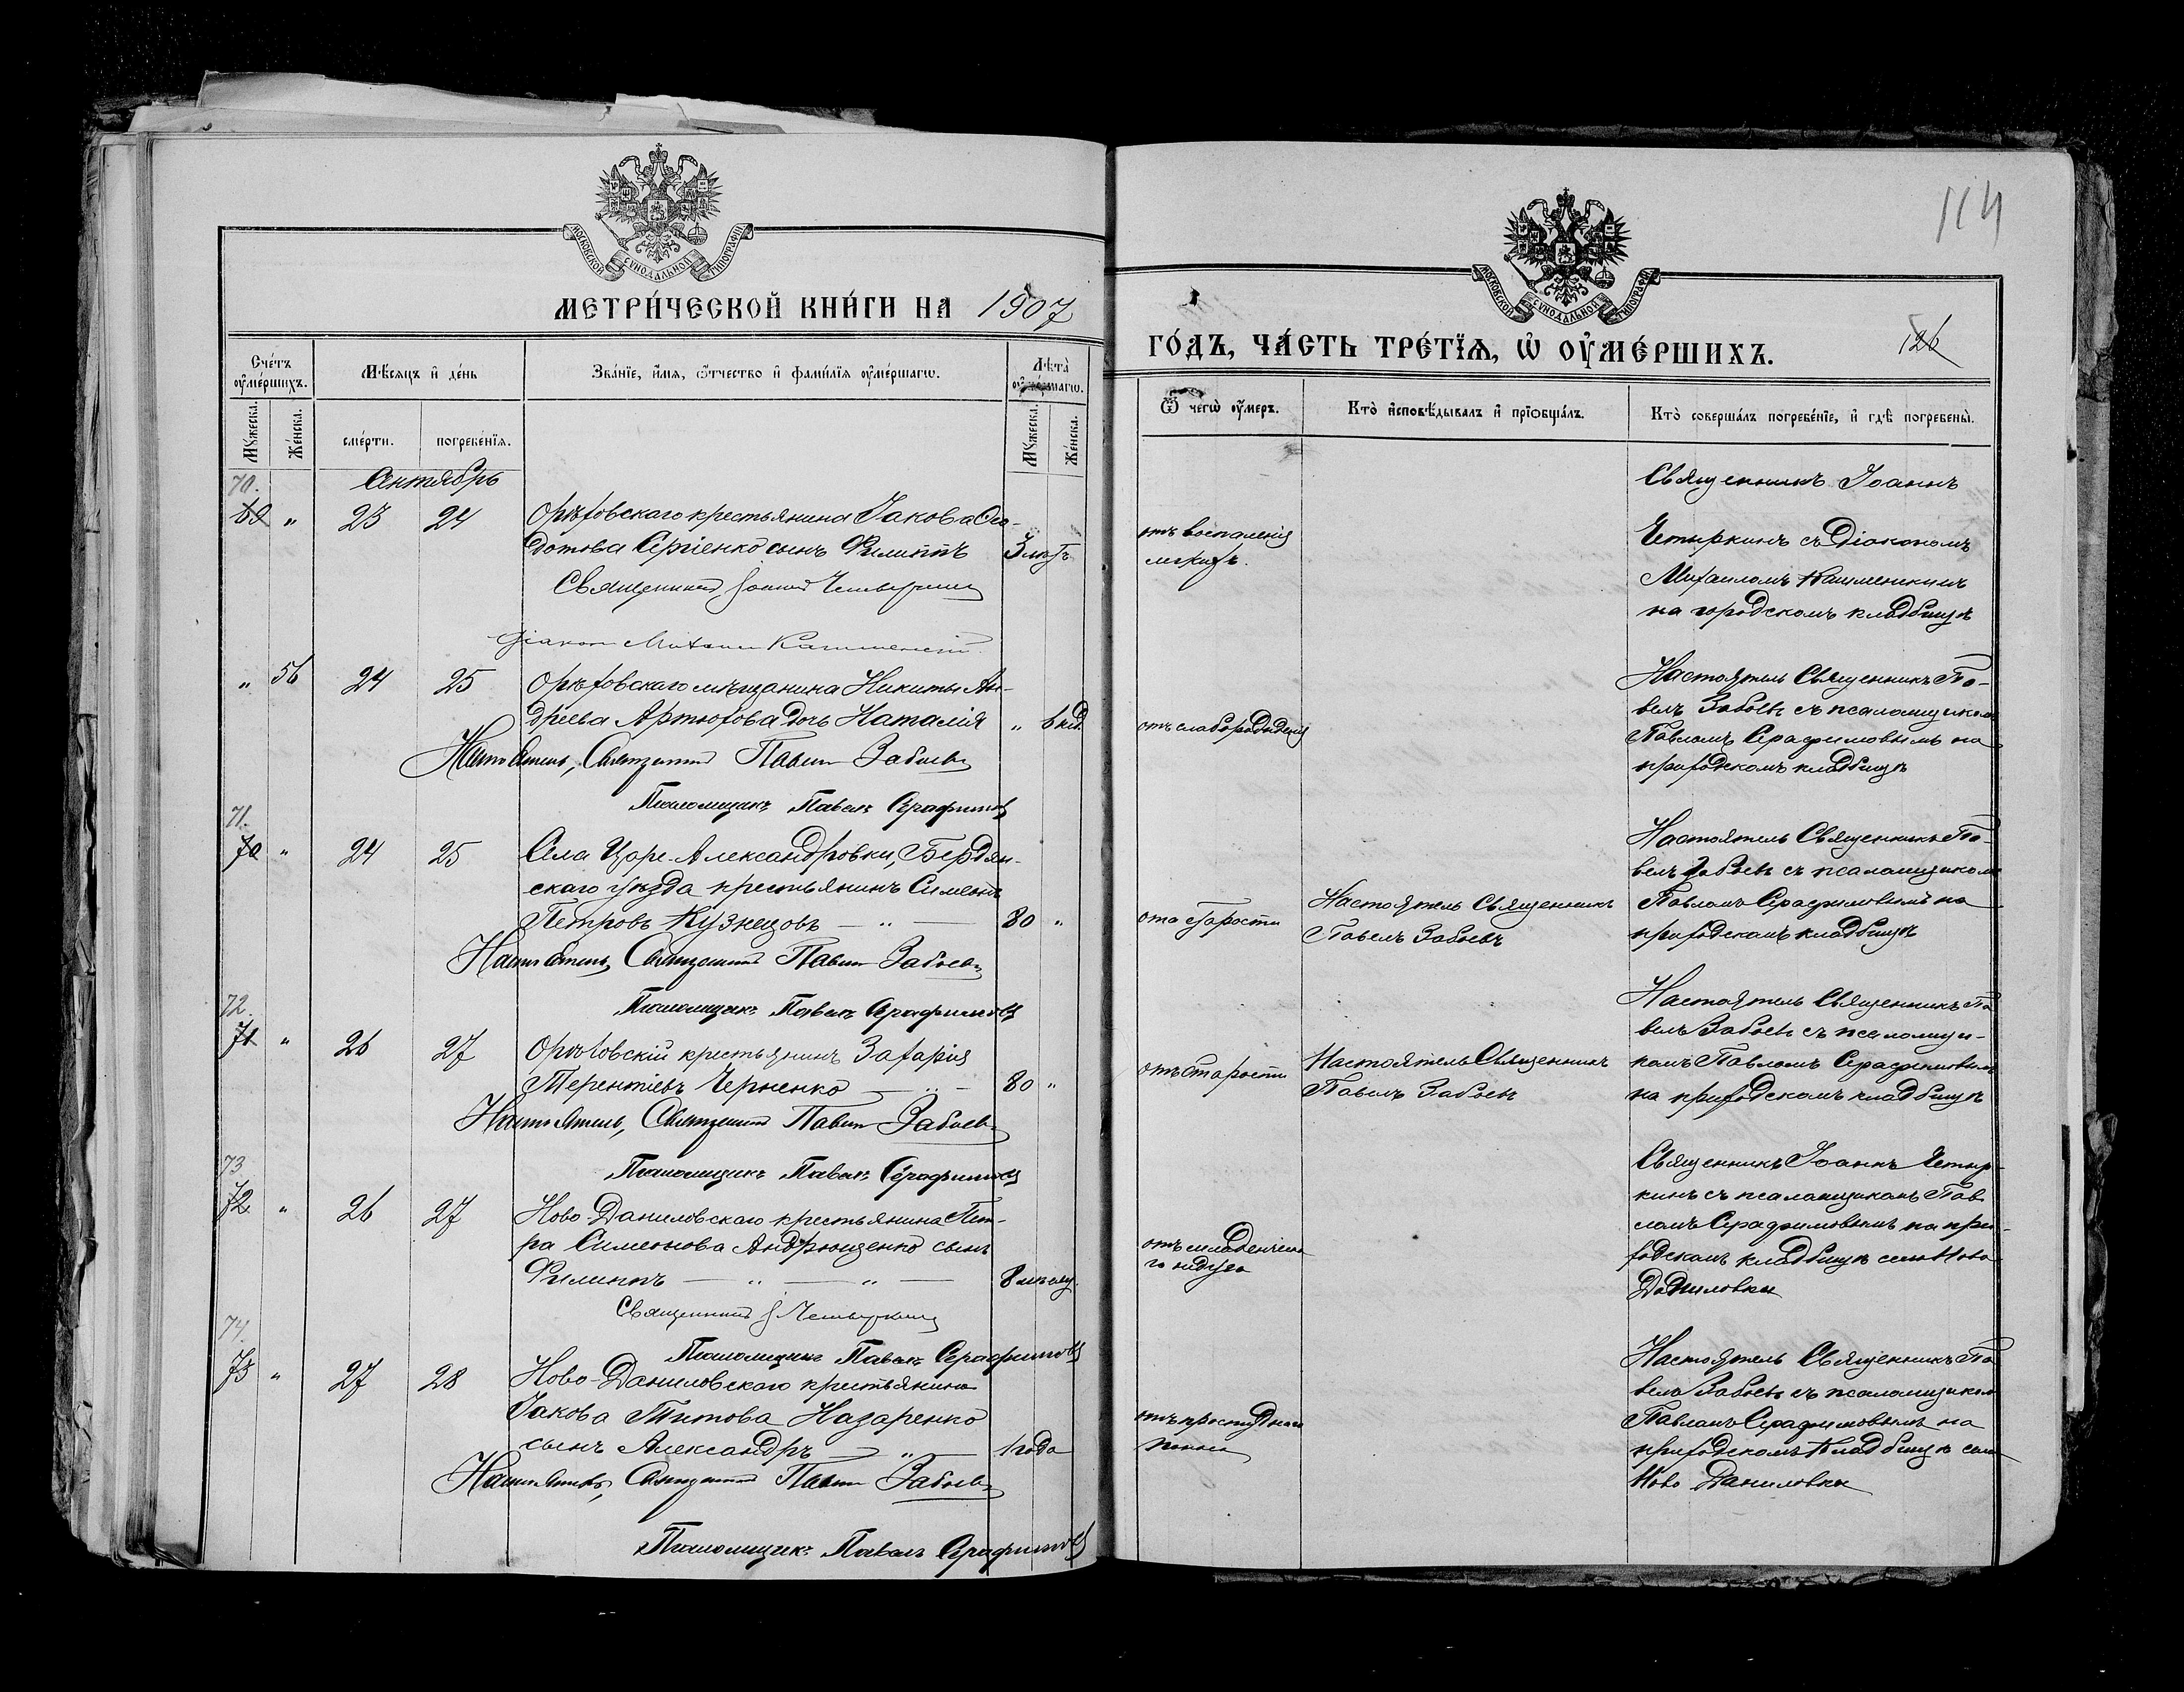 МОСКОВСКОЙ СѴНОДАЛЬНОЙ ТИПОГРАФІИ
МЕТРИ́ЧЕСКОЙ КНИ́ГИ НА 1907
Сче́тъ оу҆ме́ршихъ.
Мѣ́сяцъ и҆ де́нь
Зва́нїе, и҆́мя, ѻ҆́тчество и҆ фами́лїя оу҆ме́ршагѡ.
Лѣта̀ оу҆ме́ршагѡ.
Мꙋжеска.
Же́нска.
сме́рти.
погребе́нїя.
Мꙋжеска.
Же́нска.
Сентябрь
70.
69 " 23 24 Орѣховскаго крестьянина Іакова Ѳео-
дотова Сергіенко сынъ Филиппъ 3 лѣтъ
Священникъ Іоаннъ Четыркинъ
Діаконъ Михаилъ Кашменскій
" 56 24 25 Орѣховскаго мѣщанина Никиты Ан-
дреева Артюхова дочь Наталія " 6 нед.
Настоятель, Священникъ Павелъ Забоевъ
Псаломщикъ Павелъ Серафимовъ
71.
70 " 24 25 Села Царе-Александровки, Бердян-
скаго уѣзда крестьянинъ Симеонъ
Петровъ Кузнецовъ — " — 80 "
Настоятель, Священникъ Павелъ Забоевъ
Псаломщикъ Павелъ Серафимовъ
72.
71 " 26 27 Орѣховскій крестьянинъ Захарія
Терентіевъ Черненко — " — 80 "
Настоятель, Священникъ Павелъ Забоевъ
Псаломщикъ Павелъ Серафимовъ
73
72 " 26 27 Ново-Даниловскаго крестьянина Пет-
ра Симеонова Андрющенко сынъ
Филиппъ — " — " — 8 мѣсяц.
Священникъ І Четыркинъ
Псаломщикъ Павелъ Серафимовъ
74.
73 " 27 28 Ново-Даниловскаго крестьянина
Іакова Титова Назаренко
сынъ Александръ — " — 1 года
Настоятель, Священникъ Павелъ Забоевъ
Псаломщикъ Павелъ Серафимовъ
114
МОСКОВСКОЙ СѴНОДАЛЬНОЙ ТИПОГРАФІИ
ГО́ДЪ, ЧА́СТЬ ТРЕ́ТЇЯ, Ѡ҆ ОУ҆МЕ́РШИХЪ.
126
Ѿ чегѡ̀ оу҆́меръ.
Кто̀ и҆сповѣ́дывалъ и҆ прїѡбща́лъ.
Кто̀ соверша́лъ погребе́нїе, и҆ гдѣ̀ погребены̀.
отъ воспаленія
легкихъ.
Священникъ Іоаннъ
Четыркинъ съ Діакономъ
Михаиломъ Кашменскимъ
на городскомъ кладбищѣ
отъ слаборожденія
Настоятель Священникъ Па-
велъ Забоевъ съ псаломщикомъ
Павломъ Серафимовымъ на
приходскомъ кладбищѣ
отъ старости
Настоятель Священникъ
Павелъ Забоевъ
Настоятель Священникъ Па-
велъ Забоевъ съ псаломщикомъ
Павломъ Серафимовымъ на
приходскомъ кладбищѣ
отъ старости
Настоятель Священникъ
Павелъ Забоевъ
Настоятель Священникъ Па
велъ Забоевъ съ псаломщи-
комъ Павломъ Серафимовымъ
на приходскомъ кладбищѣ
отъ младенческа
го недуга
Священникъ Іоаннъ Четыр-
кинъ съ псаломщикомъ Пав
ломъ Серафимовымъ на при-
ходскомъ кладбищѣ села Ново
Даниловки
отъ простуднаго
поноса
Настоятель Священникъ Па
велъ Забоевъ съ псаломщикомъ
Павломъ Серафимовымъ на
приходскомъ кладбищѣ села
Ново Даниловки